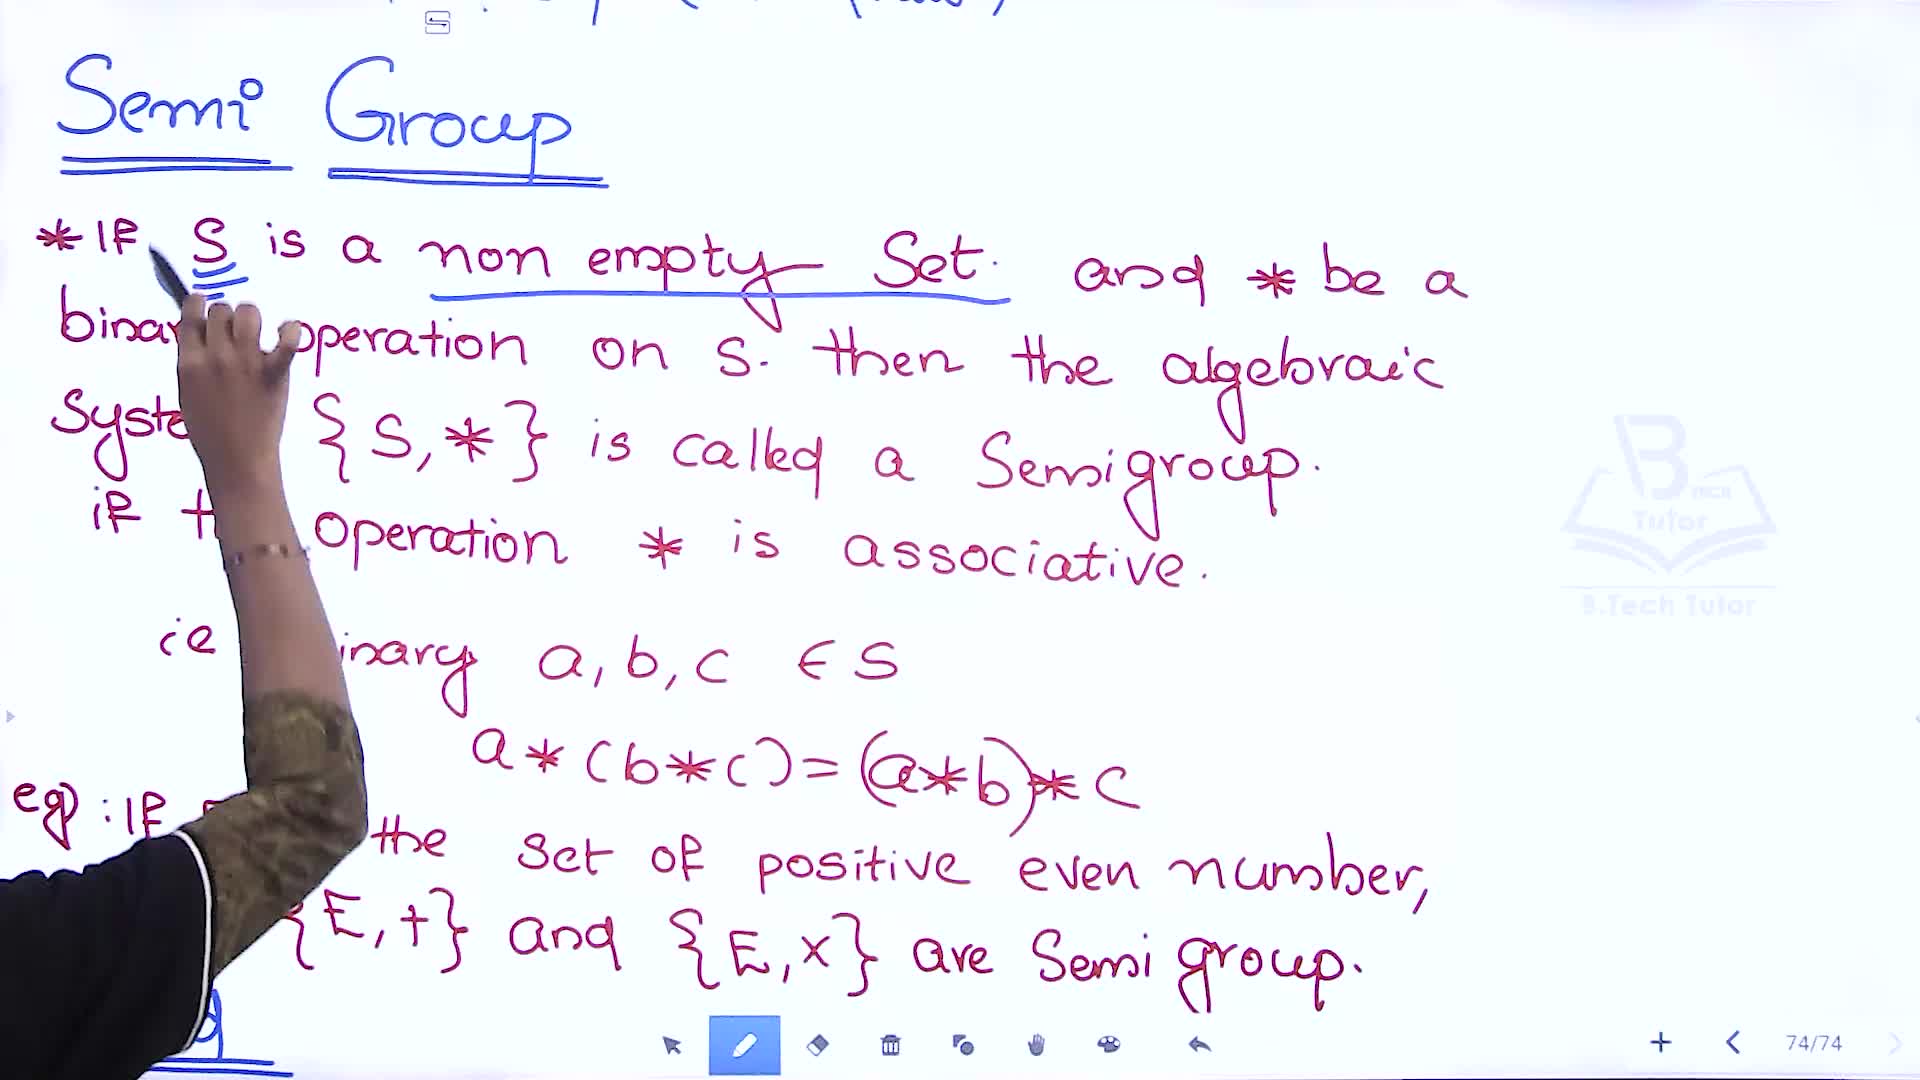 Semi Group
* If S is a non empty Set. and * be a
operation on S. then the algebraic
{S, *} is called a Semigroup.
if operation * is associative.
ie a, b, c ∈ S
a * (b * c) = (a * b) * c
eg : If the set of positive even number,
{E, +} and {E, x} are Semi group.
B TECH
Tutor
B.Tech Tutor
74/74